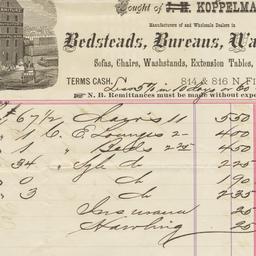 Bought of J. H. KOPPELMA
Manufacturers of and Wholesale Dealers in
Bedsteads, Bureaus, Wa
Sofas, Chairs, Washstands, Extension Tables,
TERMS CASH. 814 & 816 N. Fi
Less 5% in 10 days or 60
N. B. Remittances must be made without expe
# 67½ Chairs 11 550
" 1 C. E Lounges 2- 400
" 1 " Beds 2 25 450
" 34 " 225
" 0 " 190
" 3 " 235
Insurance 25
Hawling 25